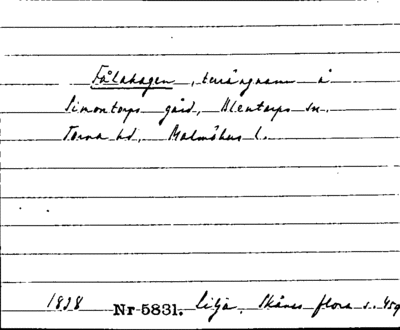 Fålahagen, terrängnamn å
Simontorps gård, Alentorps sn.
Torna hd, Malmöhus l.
1838 Nr 5831. Lilja, Skånes flora s. 459